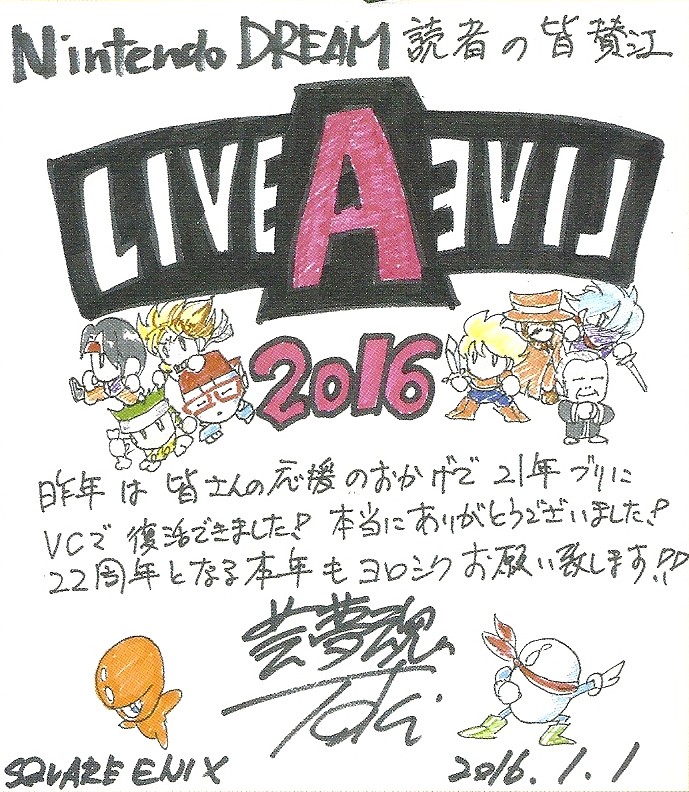 Nintendo DREAM 読者の皆賛江
LIVE A EVIL
2016
昨年は皆さんの応援のおかげで21年ブリに
VCで復活できました!本当にありがとうございました!
22周年となる本年もヨロシクお願い致します!!
芸夢魂
Toki
SQUARE ENIX
2016.1.1